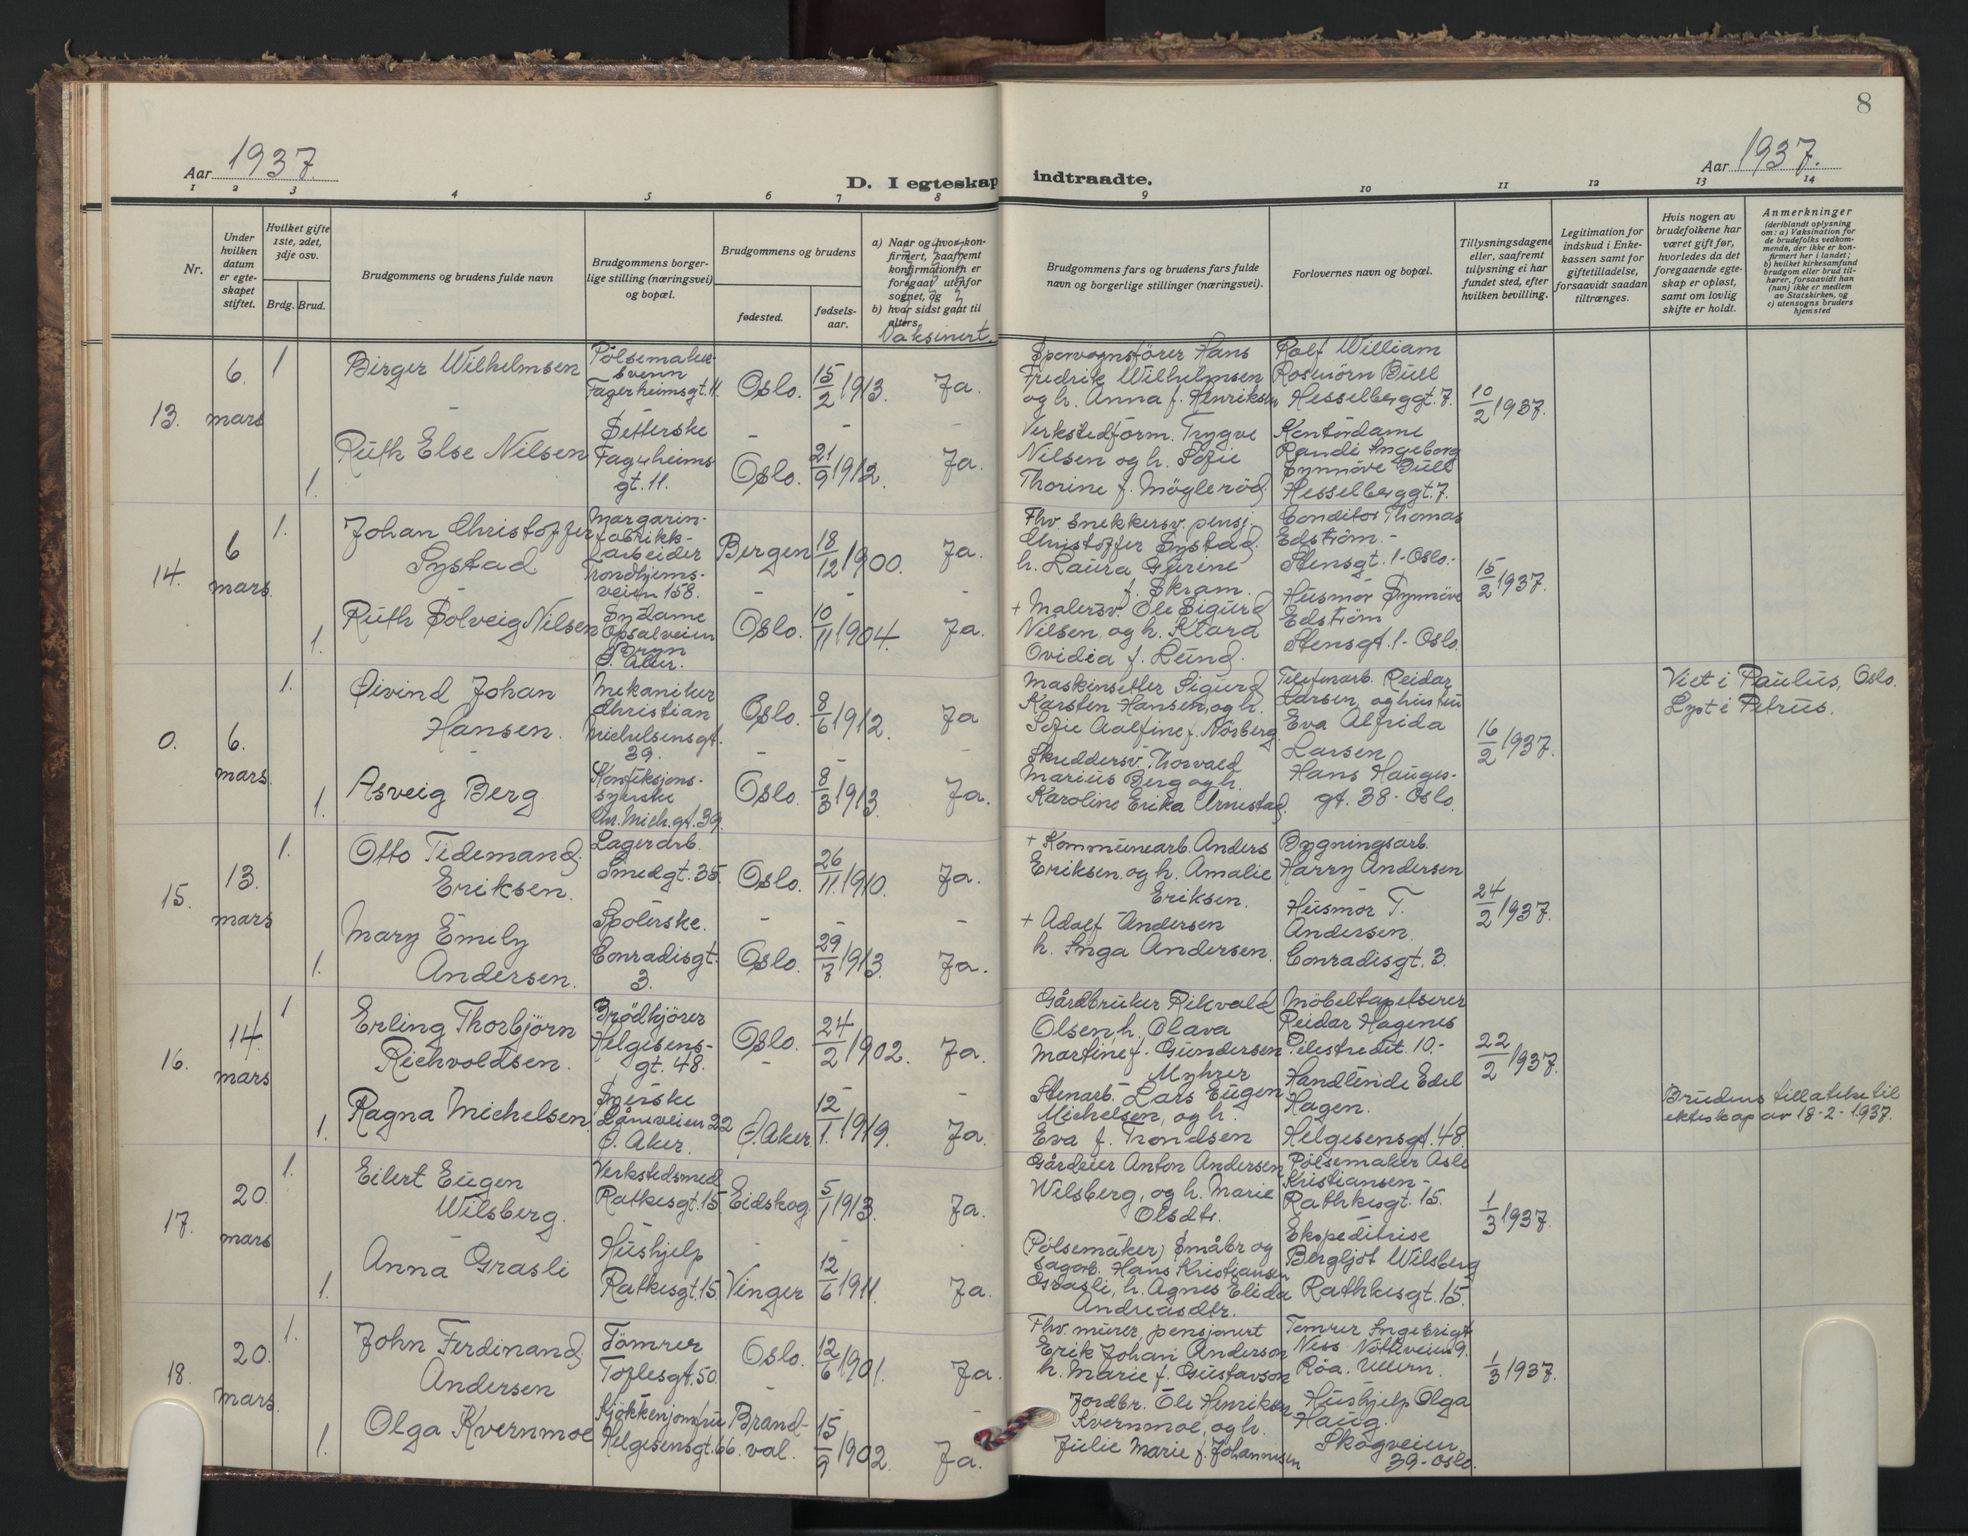 8
Aar 1937.
D. I egteskap indtraadte.
Aar 1937.
1 2 3 4 5 6 7 8 9 10 11 12 13 14
Nr.
Under
hvilken
datum
er egte-
skapet
stiftet.
Hvilket gifte
1ste, 2det,
3dje osv.
Brdg. Brud.
Brudgommens og brudens fulde navn
Brudgommens borger-
lige stilling (næringsvei)
og bopæl.
Brudgommens og brudens
fødested.
fødsels-
aar.
a) Naar og hvor kon-
firmert, saafremt
konfirmationen er
foregaat utenfor
sognet, og
b) hvor sidst gaat til
alters.
Vaksinert.
Brudgommens fars og brudens fars fulde
navn og borgerlige stillinger (næringsvei).
Forlovernes navn og bopæl.
Tillysningsdagene
eller, saafremt
tillysning ei har
fundet sted, efter
hvilken bevilling.
Legitimation for
indskud i Enke-
kassen samt for
giftetilladelse,
forsaavidt saadan
tiltrænges.
Hvis nogen av
brudefolkene har
været gift før,
hvorledes da det
foregaaende egte-
skap er opløst,
samt om lovlig
skifte er holdt.
Anmerkninger
(deriblandt oplysning
om: a) Vaksination for
de brudefolks vedkom-
mende, der ikke er kon-
firmert her i landet;
b) hvilket kirkesamfund
brudgom eller brud til-
hører, forsaavidt han
(hun) ikke er medlem
av Statskirken, og
c) utensogns bruders
hjemsted
13.
6.
mars
1
Birger Wilhelmsen
Pølsemaker-
svenn
Fagerheimsgt. 11.
Oslo. 15/2 1913. Ja.
Sporvognsfører Hans
Fredrik Wilhelmsen
og h. Anna f. Henriksen
Rolf William
Rosenörn Bull
Hesselberggt. 7.
10/2 1937.
1.
Ruth Else Nilsen
Setterske
Fagerheims-
gt. 11.
Oslo. 21/9 1912. Ja.
Verkstedform. Trygve
Nilsen og h. Sofie
Thorine f. Møglerød.
Kontordame
Randi Ingeborg
Synnøve Bull
Hesselberggt. 7.
14.
6
mars.
1.
Johan Christoffer
Systad.
Margarin-
fabrikk-
arbeider
Trondhjems-
veien 158.
Bergen 18/12 1900. Ja.
Fhv. snekkersv. pensj.
Christoffer Systad.
h. Laura Gurine
f. Skram.
Conditor Thomas
Edström -
Stensgt. 1 - Oslo.-
15/2 1937.
1.
Ruth Solveig Nilsen
Sydame
Opsalveien
Bryn
Ø. Aker.
Oslo. 10/11 1904. Ja.
+ Malersv. Ole Sigurd
Nilsen, og h. Klara
Ovidia f. Lund.
Husmor Synnøve
Edström
Stensgt. 1 - Oslo.
0.
6.
mars.
1.
Øivind Johan
Hansen.
Mekaniker
Christian
Michelsensgt.
39.
Oslo. 8/6 1912. Ja
Maskinsetter Sigurd
Karsten Hansen, og h.
Sofie Aalfine f. Norberg.
Telefonarb. Reidar
Larsen, og hustru
Eva Alfrida
Larsen
16/2 1937.
Viet i Paulus, Oslo.
Lyst i Petrus.
1.
Asveig Berg
Konfeksjons-
syerske
Chr. Mich. gt. 39.
Oslo. 8/3 1913. Ja.
Skreddersv. Thorvald
Marius Berg og h.
Karoline Erika Arnestad.
Hans Hauges-
gt. 38 - Oslo.
15.
13.
mars
1.
Otto Tidemand
Eriksen.
Lagerarb.
Smedgt. 35.
Oslo. 26/11 1910. Ja.
+ Kommunearb. Anders
Eriksen, og h. Amalie
Eriksen.
Bygningsarb.
Harry Andersen
24/2 1937.
1.
Mary Emily
Andersen.
Spolerske.
Conradisgt.
3.
Oslo. 29/7 1913. Ja.
+ Adolf Andersen
h. Inga Andersen.
Husmor T.
Andersen.
Conradisgt. 3.
16.
14.
mars
1
Erling Thorbjørn
Richvoldsen.
Brødkjører
Helgesens-
gt. 48.
Oslo. 24/2 1902. Ja.
Gårdbruker Rikvald
Olsen, h. Olava
Martine f. Gundersen
Myhrer
Møbeltapetserer
Reidar Hagenes
Pilestredet. 10.-
22/2 1937.
1.
Ragna Michelsen.
Syerske
22
Ø. Aker.
Ø. Aker 12/1 1919. Ja.
Stenarb. Lars Eugen
Michelsen, og h.
Eva f. Trondsen
Handlende Edel
Hagen.
Helgesensgt. 48.
Brudens tillatelse til
ekteskap av 18-2-1937.
17.
20.
mars
1.
Eilert Eugen
Wilsberg.
Verkstedsmed
Ratkesgt. 15
Eidskog 5/1 1913. Ja.
Gårdeier Anton Andersen
Wilsberg, og h. Marie
Olsdtr.
Pølsemaker Asle
Kristiansen -
Rathkesgt. 15.
1/3 1937.
1.
Anna Grasli
Hushjelp
Ratkesgt. 15
Vinger 12/6 1911. Ja.
(Pølsemaker) Småbr og
sagarb. Hans Kristiansen
Grasli, h. Agnes Elida
Andreasdtr.
Ekspeditrise
Bergljot Wilsberg
Rathkesgt. 15.
18.
20.
mars.
1.
John Ferdinand
Andersen
Tømrer
Toftesgt. 50.
Oslo. 12/6 1901. Ja.
Fhv. murer, pensjonert
Erik Johan Anderson
h. Marie f. Gustavson
Tømrer Ingebrigt
Ness 9.
Røa. Ullern.
1/3 1937.
1.
Olga Kvernmoe
Kjøkkenjomfru
Helgesensgt. 66.
Brand-
val. 15/9 1902. Ja.
Jordbr. Ole Henriksen
Kvernmoe, og h.
Julie Marie f. Johannesen
Hushjelp Olga
Haug.
Skogveien
39 - Oslo.